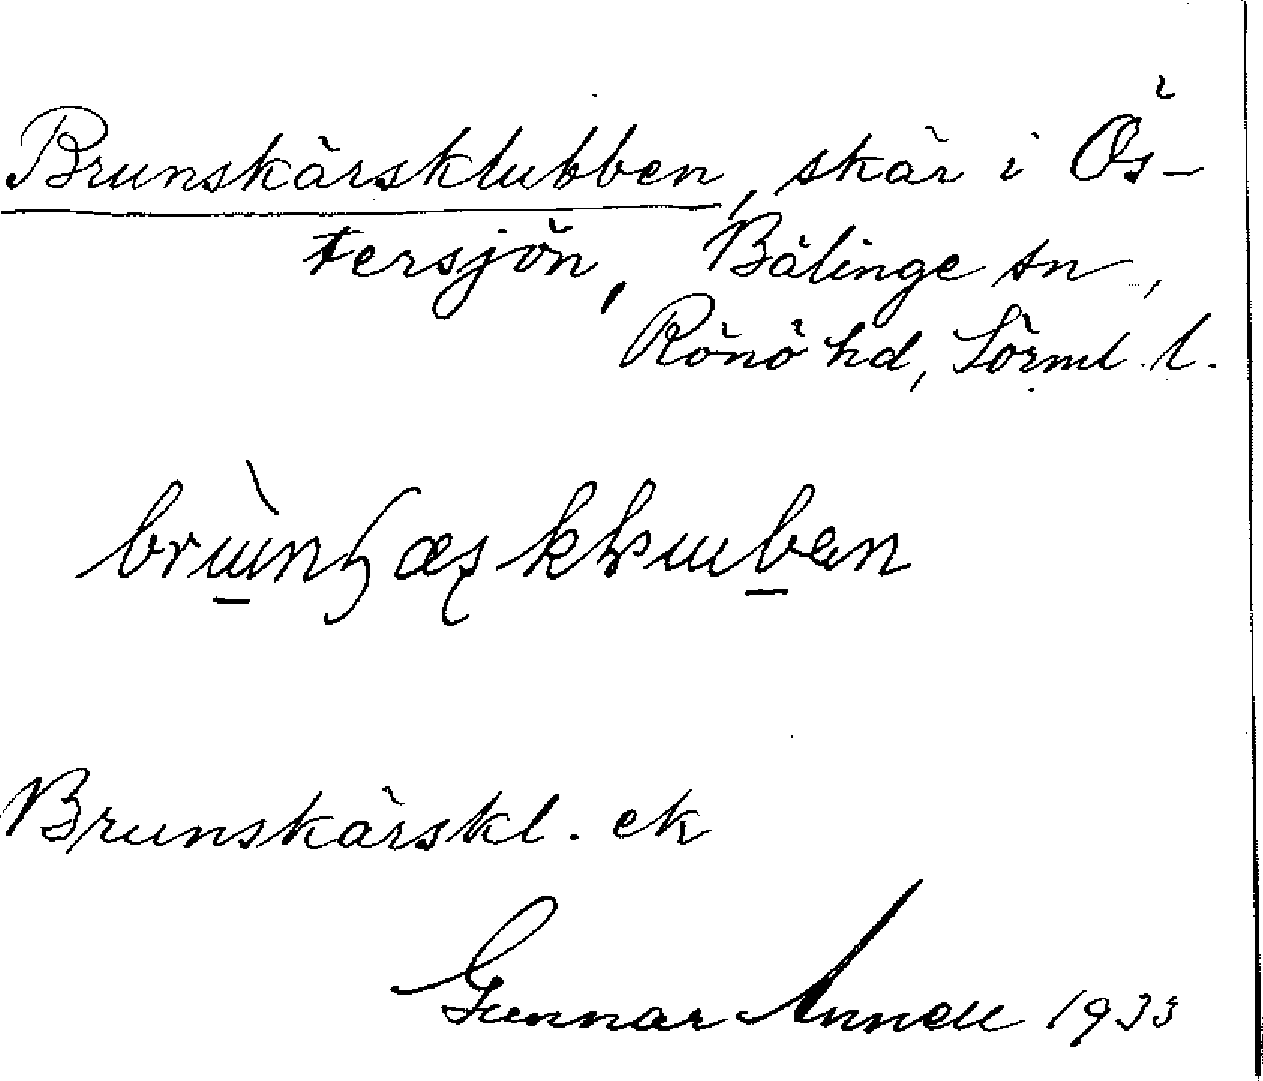 Brunskärsklubben, skär i Ös-
tersjön, Bälinge sn,
Rönö hd, Sörml. l.
Brunskärskl. ek
Gunnar Annell 1933